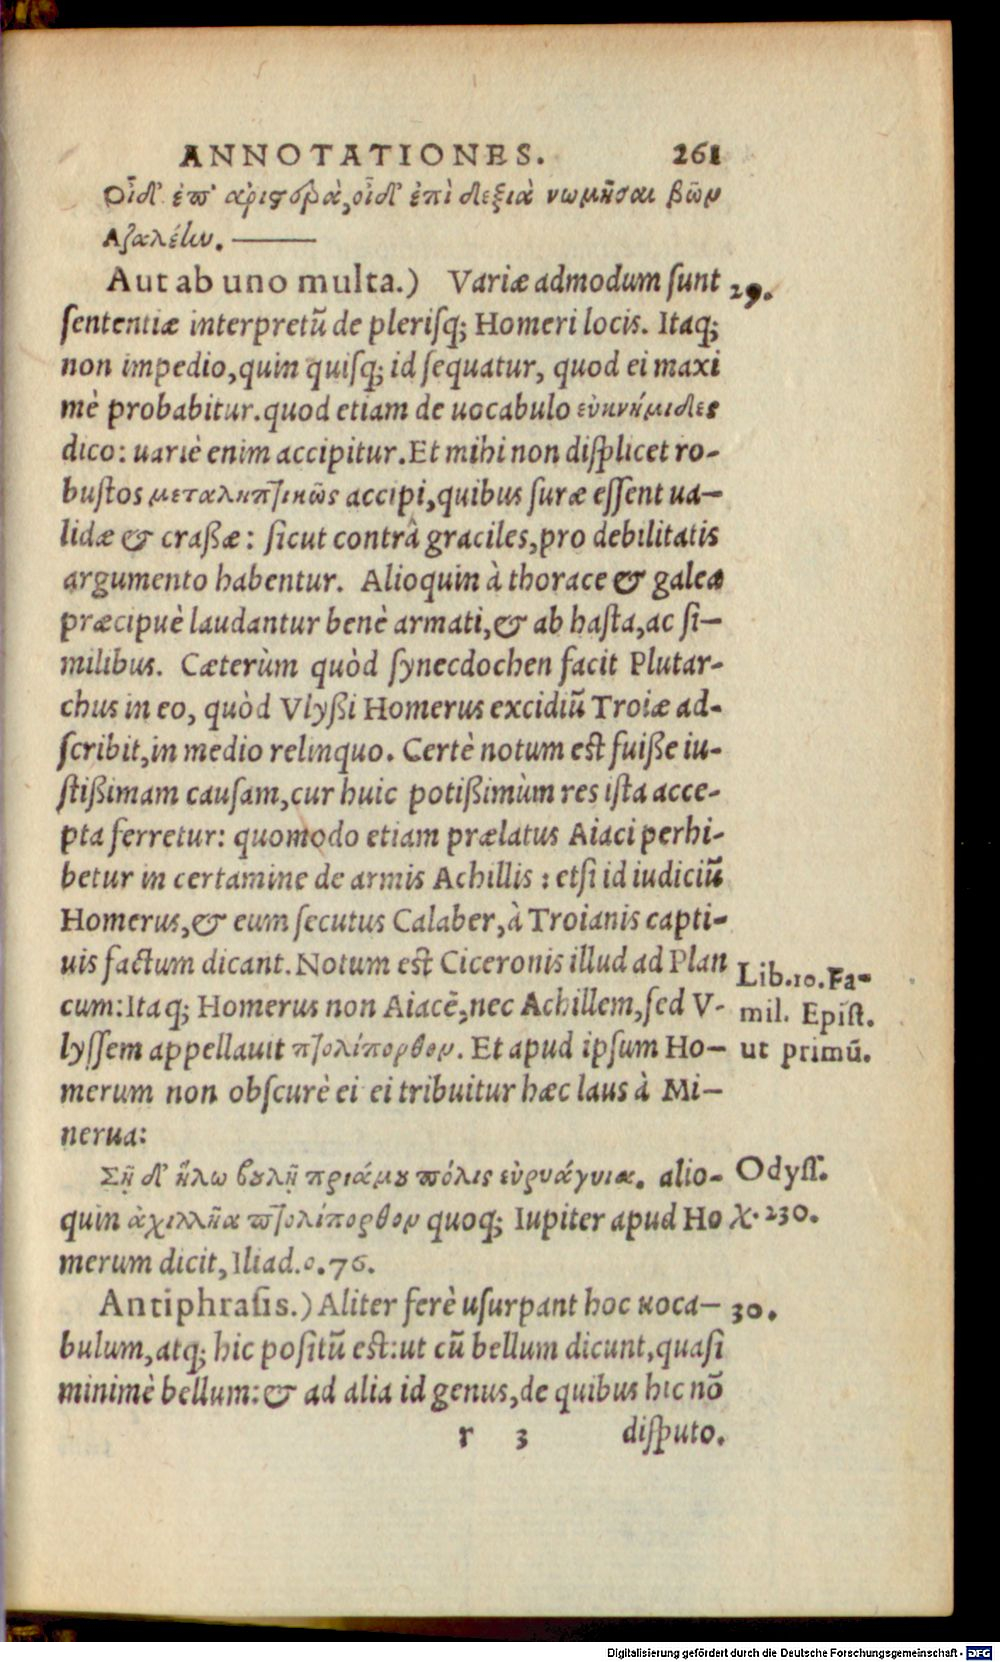 ANNOTATIONES. 261
Οἶδ' ἐπ' ἀριστερὰ, οἶδ' ἐπὶ δεξιὰ νωμῆσαι βῶν
Ἀζαλέην. ———
Aut ab uno multa.) Variæ admodum sunt 29.
sententiæ interpretū de plerisq; Homeri locis. Itaq;
non impedio, quin quisq; id sequatur, quod ei maxi
mè probabitur. quod etiam de uocabulo εὐκνήμιδες
dico: uariè enim accipitur. Et mihi non displicet ro-
bustos μεταληπτικῶς accipi, quibus suræ essent ua-
lidæ & crassæ: sicut contrâ graciles, pro debilitatis
argumento habentur. Alioquin à thorace & galea
præcipuè laudantur benè armati, & ab hasta, ac si-
milibus. Cæterùm quòd synecdochen facit Plutar-
chus in eo, quòd Vlyssi Homerus excidiū Troiæ ad-
scribit, in medio relinquo. Certè notum est fuisse iu-
stissimam causam, cur huic potissimùm res ista acce-
pta ferretur: quomodo etiam prælatus Aiaci perhi-
betur in certamine de armis Achillis: etsi id iudiciū
Homerus, & eum secutus Calaber, à Troianis capti-
uis factum dicant. Notum est Ciceronis illud ad Plan
cum: Itaq; Homerus non Aiacē, nec Achillem, sed V-
lyssem appellauit πτολίπορθον. Et apud ipsum Ho-
merum non obscurè ei ei tribuitur hæc laus à Mi-
nerua:
Lib. 10. Fa-
mil. Epist.
ut primū.
Σῇ δ' ἥλω βουλῇ πριάμου πόλις εὐρυάγυια. alio-
quin ἀχιλλῆα πτολίπορθον quoq; Iupiter apud Ho
merum dicit, Iliad. ο. 76.
Odyss.
χ. 230.
Antiphrasis.) Aliter ferè usurpant hoc uoca- 30.
bulum, atq; hic positū est: ut cū bellum dicunt, quasi
minimè bellum: & ad alia id genus, de quibus hic nō
r 3 disputo.
Digitalisierung gefördert durch die Deutsche Forschungsgemeinschaft - DFG